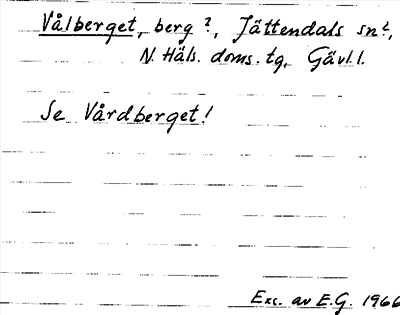 Vålberget, berg?, Jättendals sn?,
N. Häls. doms. tg, Gävl. l.
Se Vårdberget!
Exc. av E.G. 1966